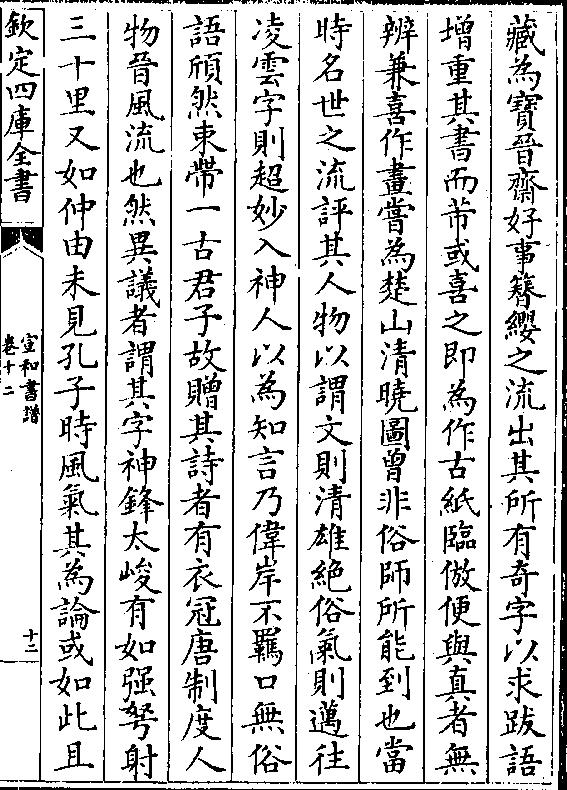 藏為寶晉齋好事簪纓之流出其所有奇字以求跋語
增重其書而芾或喜之即為作古紙臨倣便與真者無
辨兼喜作畫嘗為楚山清曉圖曾非俗師所能到也當
時名世之流評其人物以謂文則清雄絕俗氣則邁往
凌雲字則超妙入神人以為知言乃偉岸不羈口無俗
語頎然束帶一古君子故贈其詩者有衣冠唐制度人
物晉風流也然異議者謂其字神鋒太峻有如强弩射
三十里又如仲由未見孔子時風氣其為論或如此且
欽定四庫全書
宣和書譜
卷十二
十二